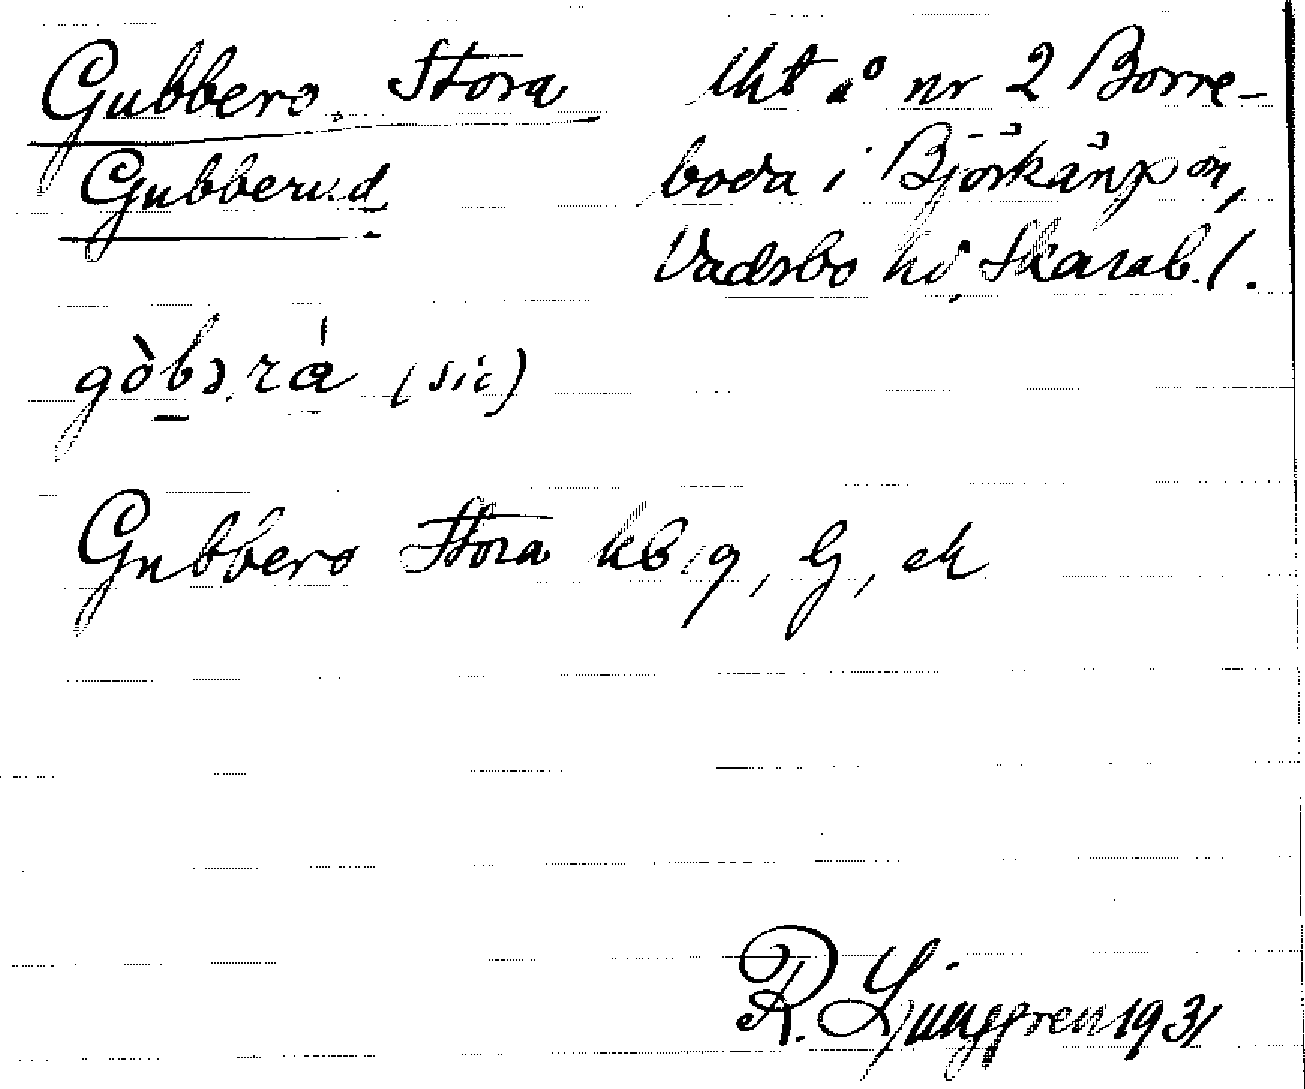 Gubbero, Stora lht å nr 2 Borre-
Gubberud boda i Björkängs sn,
Vadsbo hd, Skarab. l.
gòbɔrá (sic)
Gubbero Stora kb, g, lj, ek
R. Ljunggren 1931